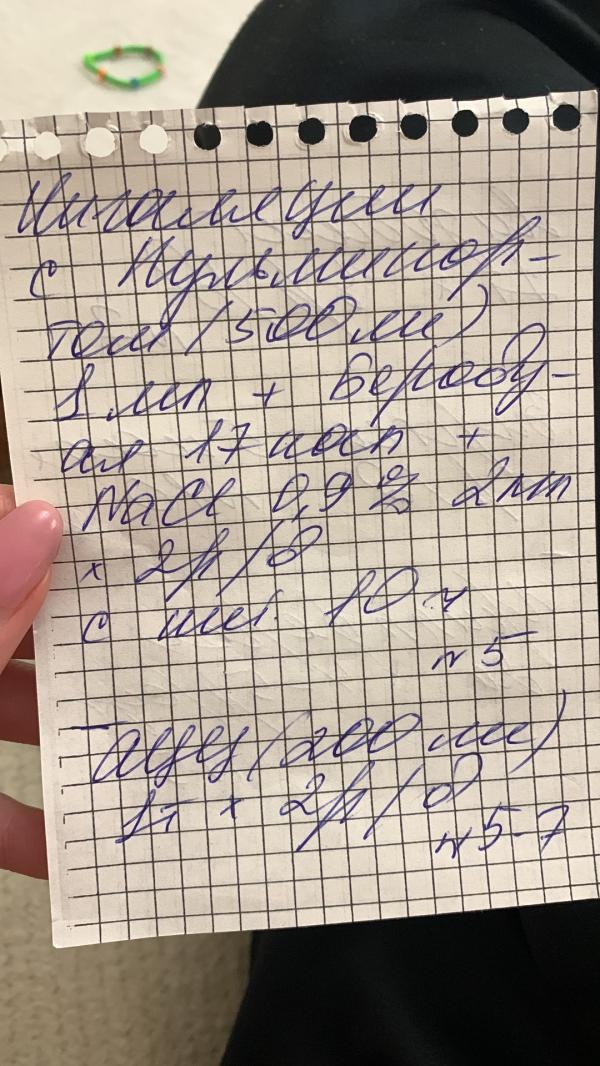 Ингаляции
с Пульмикор-
том (500 мг)
1 мл + Бероду-
ал 17 кап +
NaCl 0,9% 2мл
x 2р/д
с инт. 10 ч
N 5
АЦЦ (200 мг)
1т x 2р/д
N 5-7